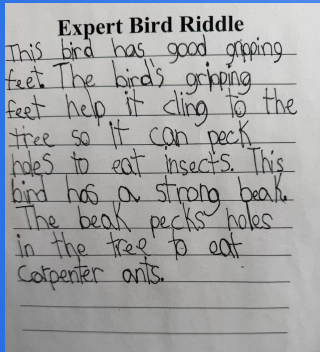 Expert Bird Riddle
This bird has good gripping
feet. The bird's gripping
feet help it cling to the
tree so it can peck
holes to eat insects. This
bird has a strong beak.
The beak pecks holes
in the tree to eat
Carpenter ants.